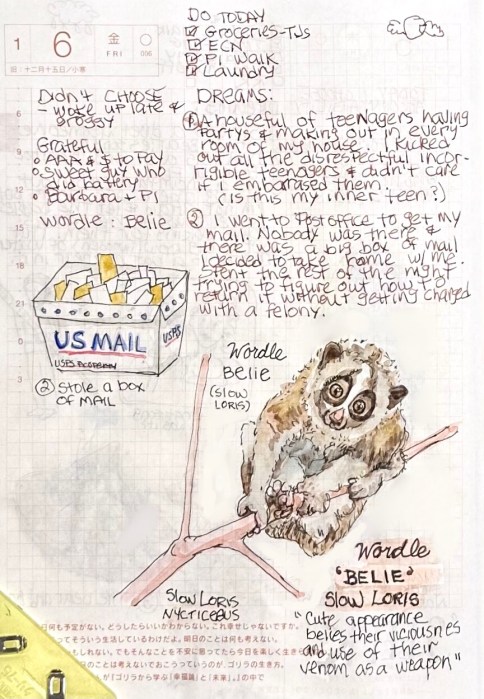 DO TODAY
Groceries-TJs
ECN
Pi Walk
Laundry
1 6 金 FRI 006
旧:十二月十五日/小寒
Didn't CHOOSE
- woke up late &
groggy
Grateful
• AAA & $ to Pay
• Sweet guy who
did battery
• Barbara + Pi
Wordle: Belie
DREAMS:
① A houseful of teenagers having
partys & making out in every
room of my house. I kicked
out all the disrespectful incor-
rigible teenagers & didn't care
if I embarased them.
(is this my inner teen?)
② I went to Post office to get my
mail. Nobody was there &
there was a big box of mail
I decided to take home w/me.
Spent the rest of the night
trying to figure out how to
return it without getting charged
with a felony.
6
9
12
15
18
21
0
3
US MAIL
USPS
USPS PROPERTY
② Stole a box
of MAIL
Wordle
Belie
(SLOW
LORIS)
Slow Loris
NYCTICEBUS
Wordle
"BELIE"
Slow LORIS
"Cute appearance
belies their viciousness
and use of their
venom as a weapon"
日何も予定がない。どうしたらいいかわからない。これ幸せじゃないですか。
ってそういう生活しているわけだよ。明日のことは何も考えない。
もしれない。でもそんなことを不安に思ってたら今日を楽しく生き
のことは考えないでおこうっていうのが、ゴリラの生き方。
が『ゴリラから学ぶ「幸福論」と「未来」。』の中で